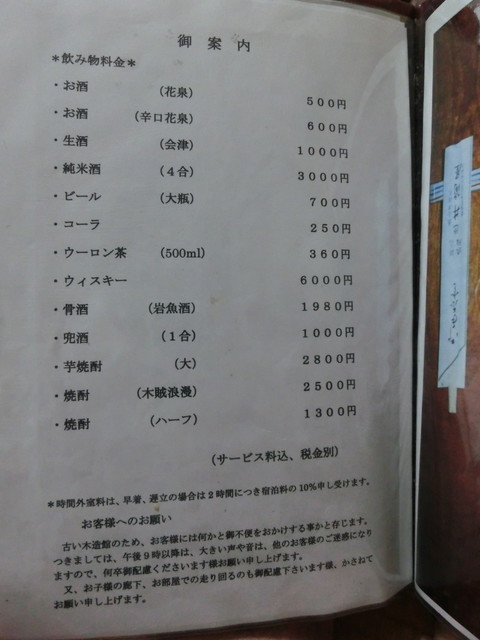 御案内
＊飲み物料金＊
・お酒 (花泉) 500円
・お酒 (辛口花泉) 600円
・生酒 (会津) 1000円
・純米酒 (４合) 3000円
・ビール (大瓶) 700円
・コーラ 250円
・ウーロン茶 (500ml) 360円
・ウィスキー 6000円
・骨酒 (岩魚酒) 1980円
・兜酒 (１合) 1000円
・芋焼酎 (大) 2800円
・焼酎 (木賊浪漫) 2500円
・焼酎 (ハーフ) 1300円
(サービス料込、税金別)
＊時間外室料は、早着、遅立の場合は２時間につき宿泊料の10%申し受けます。
お客様へのお願い
古い木造館のため、お客様には何かと御不便をおかけする事かと存じます。
つきましては、午後９時以降は、大きい声や音は、他のお客様のご迷惑になり
ますので、何卒御配慮くださいます様お願い申し上げます。
又、お子様の廊下、お部屋での走り回るのも御配慮下さいます様、かさねて
お願い申し上げます。